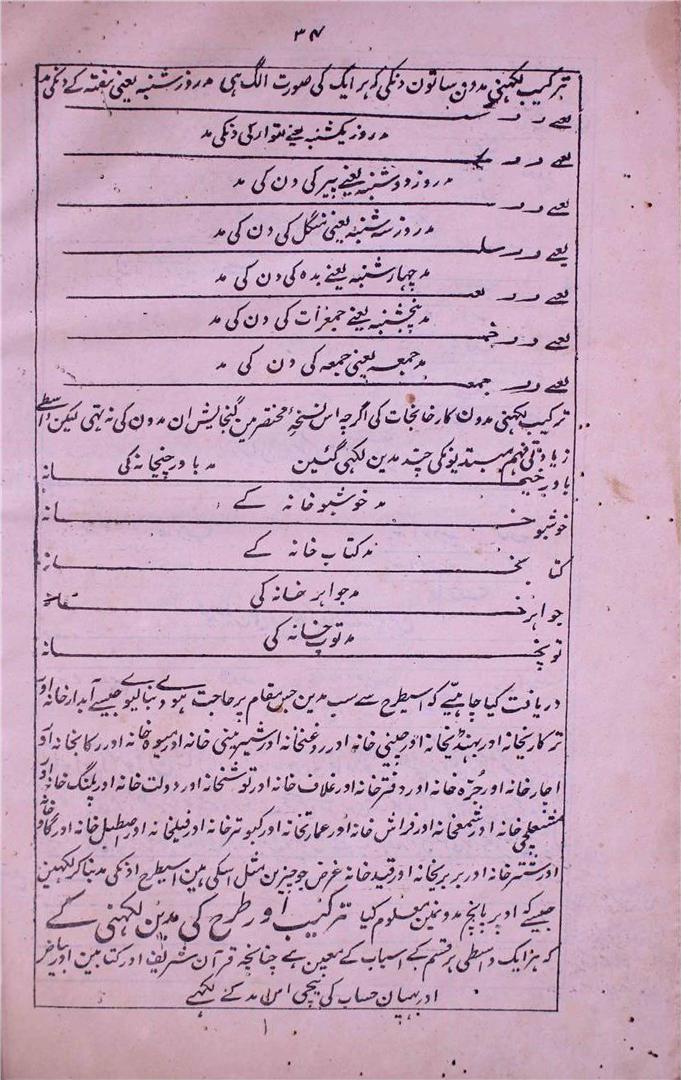 ۳۴
ترکیب لکہنی مدون ساتون دنکی کہ ہر ایک کی صورت الگ ہی مد روز شنبہ یعنی ہفتہ کے دنکی مد
مد روز یکشنبہ یعنے اتوار کی دنکی مد
مد روز دوشنبہ یعنے پیر کی دن کی مد
مد روز سہ شنبہ یعنی منگل کی دن کی مد
مد چہار شنبہ یعنے بدہ کی دن کی مد
مد پنجشنبہ یعنے جمعرات کی دن کی مد
مد جمعہ یعنی جمعہ کی دن کی مد
جمعہ
ترکیب لکہنی مدون کارخانجات کی اگرچہ اس نسخہٴ مختصر مین گنجایش ان مدون کی نہ تہی لیکن واسطے
زیادتی فہم مبتدیونکی چند مدین لکہی گئین مد باورچیخانہ کی
باورچیخانہ
مد خوشبو خانہ کے
خوشبو خانہ
مد کتاب خانہ کے
کتابخانہ
مد جواہر خانہ کی
جواہر خانہ
مد توپ خانہ کی
توپخانہ
دریافت کیا چاہیے کہ اسیطرح سے سب مدین جس مقام پر حاجت ہووے بنا لیوے جیسے آبدار خانہ اور
ترکاریخانہ اور ہنڈیخانہ اور چینی خانہ اور روغنخانہ اور شیرینی خانہ اور میوہ خانہ اور رکابخانہ اور
اچار خانہ اور حجرہ خانہ اور دفتر خانہ اور غلاف خانہ اور توشخانہ اور دولت خانہ اور پلنگ خانہ اور
مشعلچی خانہ اور شمعخانہ اور فراش خانہ اور عمارتخانہ اور کبوتر خانہ اور فیلخانہ اور اصطبل خانہ اور گاو خانہ
اور شتر خانہ اور بریریخانہ اور قید خانہ غرض جو چیزین مثل اسکی ہین اسیطرح اونکی مد بنا کر لکہین
جیسے کہ اوپر پانچ مدونمین معلوم کیا ترکیب اور طرح کی مدین لکہنی کے
کہ ہر ایک واسطی ہر قسم کے اسباب کے معین ہے چنانچہ قرآن شریف اور کتابین اور بیاض
اور یہان حساب کی نیچی اس مد کے لکہے